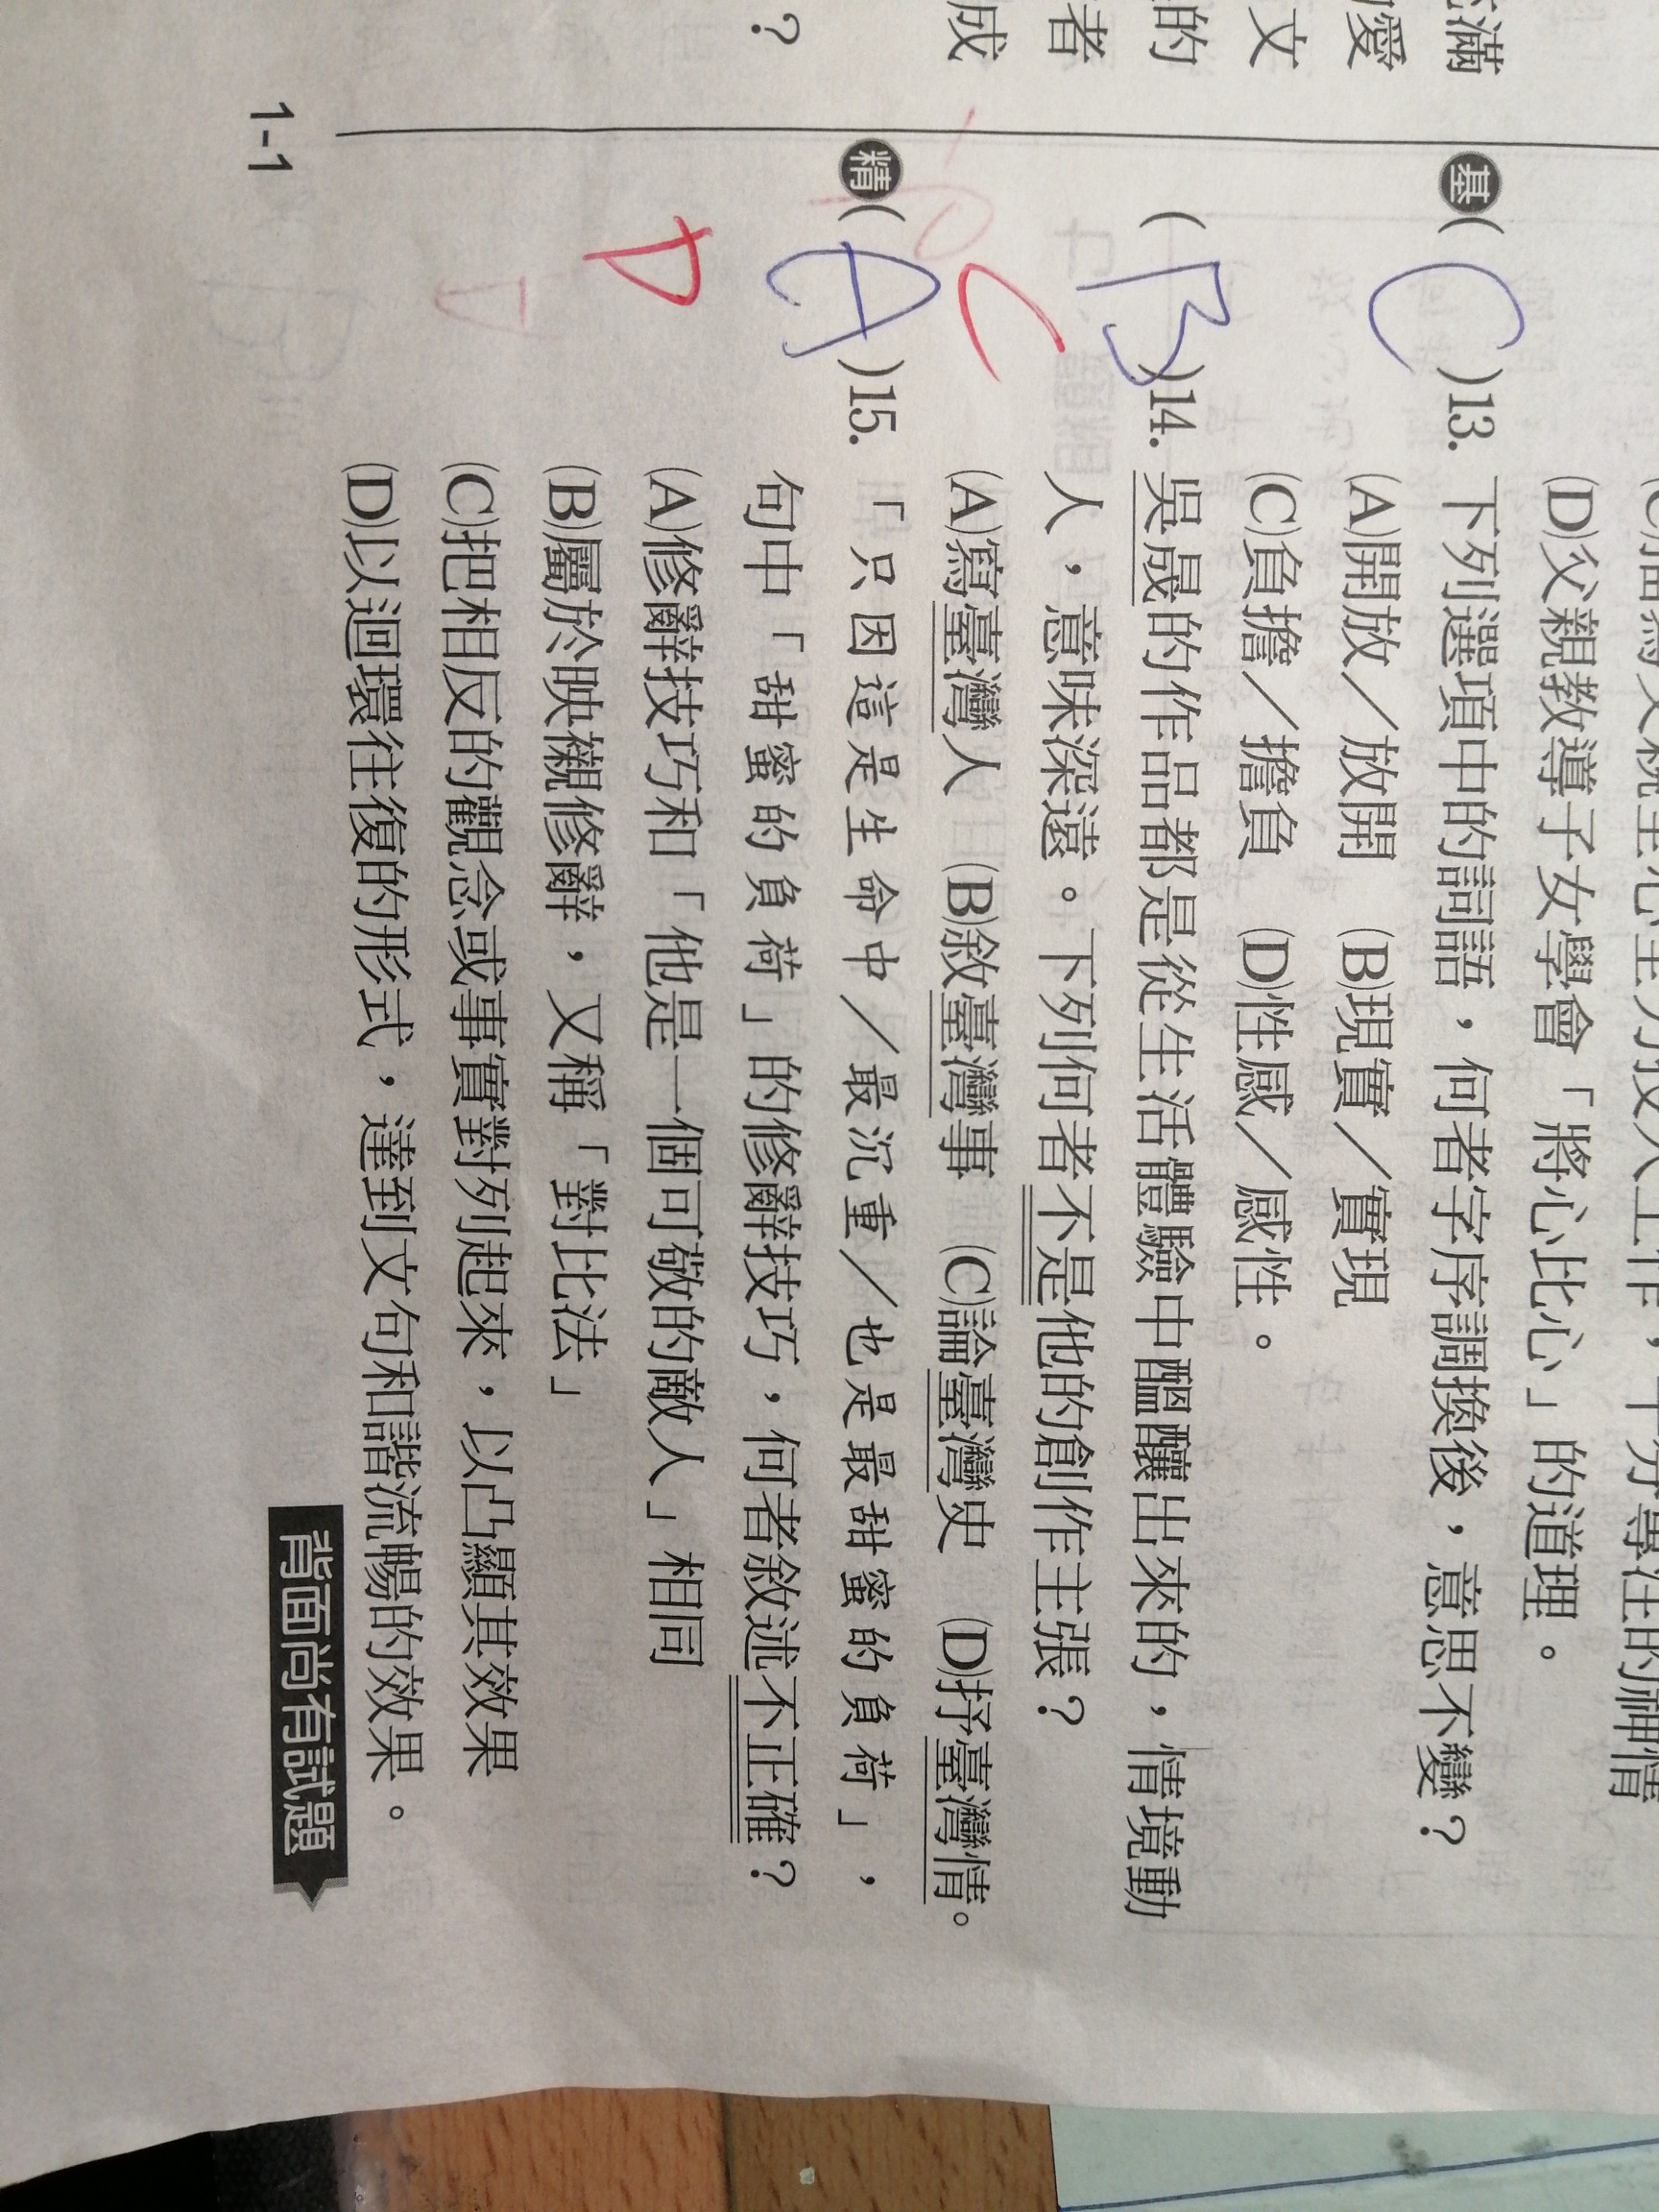 滿
愛
文
的
者
成
？
(D)父親教導子女學會「將心比心」的道理。
基( C )13. 下列選項中的詞語，何者字序調換後，意思不變？
(A)開放／放開 (B)現實／實現
(C)負擔／擔負 (D)性感／感性。
( B )14. 吳晟的作品都是從生活體驗中醞釀出來的，情境動
人，意味深遠。下列何者不是他的創作主張？
C
(A)寫臺灣人 (B)敘臺灣事 (C)論臺灣史 (D)抒臺灣情。
精( A )15. 「只因這是生命中／最沉重／也是最甜蜜的負荷」，
句中「甜蜜的負荷」的修辭技巧，何者敘述不正確？
D
(A)修辭技巧和「他是一個可敬的敵人」相同
(B)屬於映襯修辭，又稱「對比法」
(C)把相反的觀念或事實對列起來，以凸顯其效果
(D)以迴環往復的形式，達到文句和諧流暢的效果。
1-1
背面尚有試題